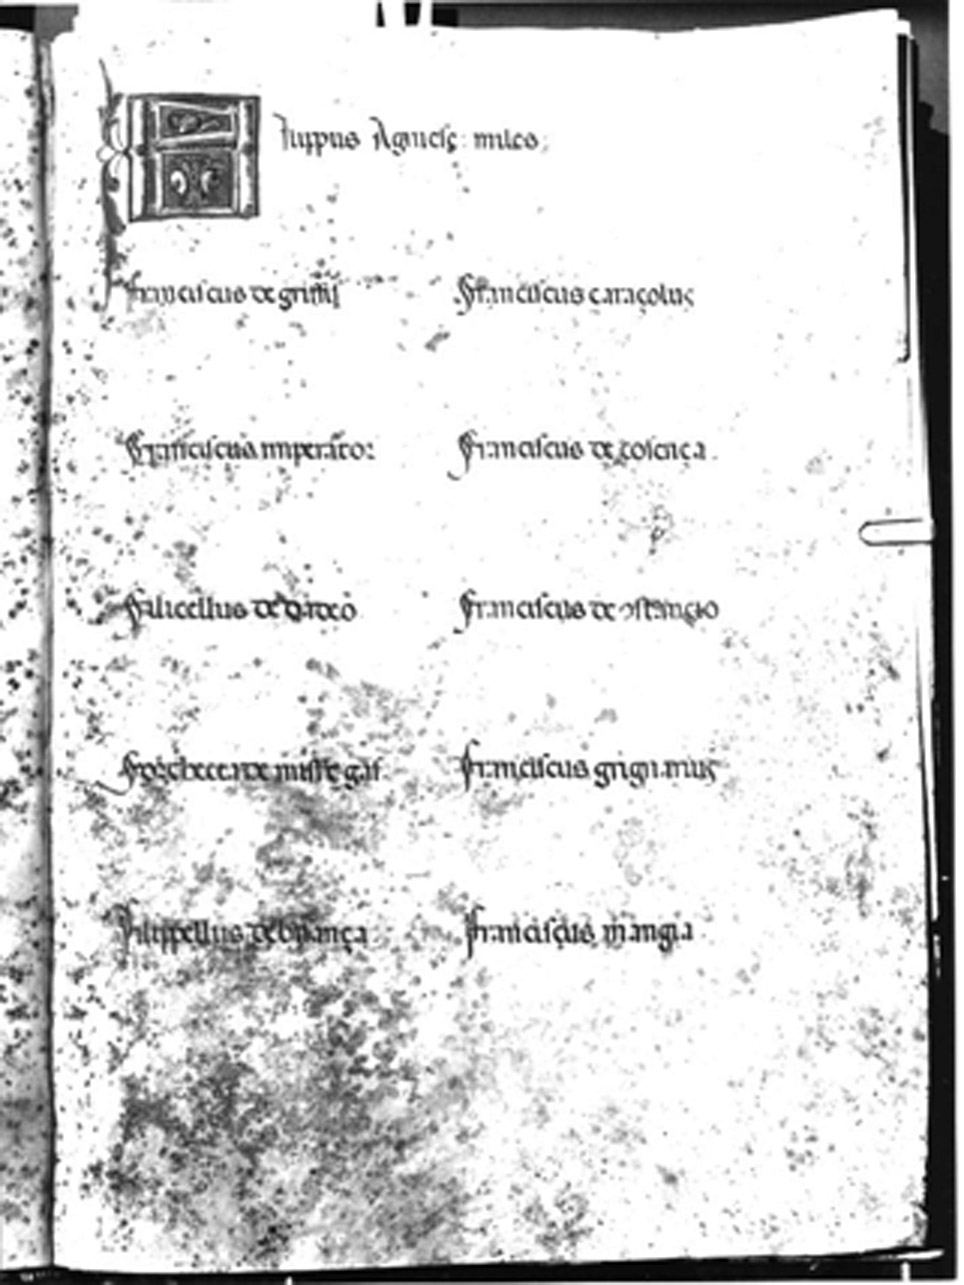 Filippus Agnesis miles
franciscus de griffis
franciscus caraçolus
franciscus imperator
franciscus de cosença
falicellus de dadeo
franciscus de ostangio
franciscus grignanus
filippellus de brança
franciscus mangia